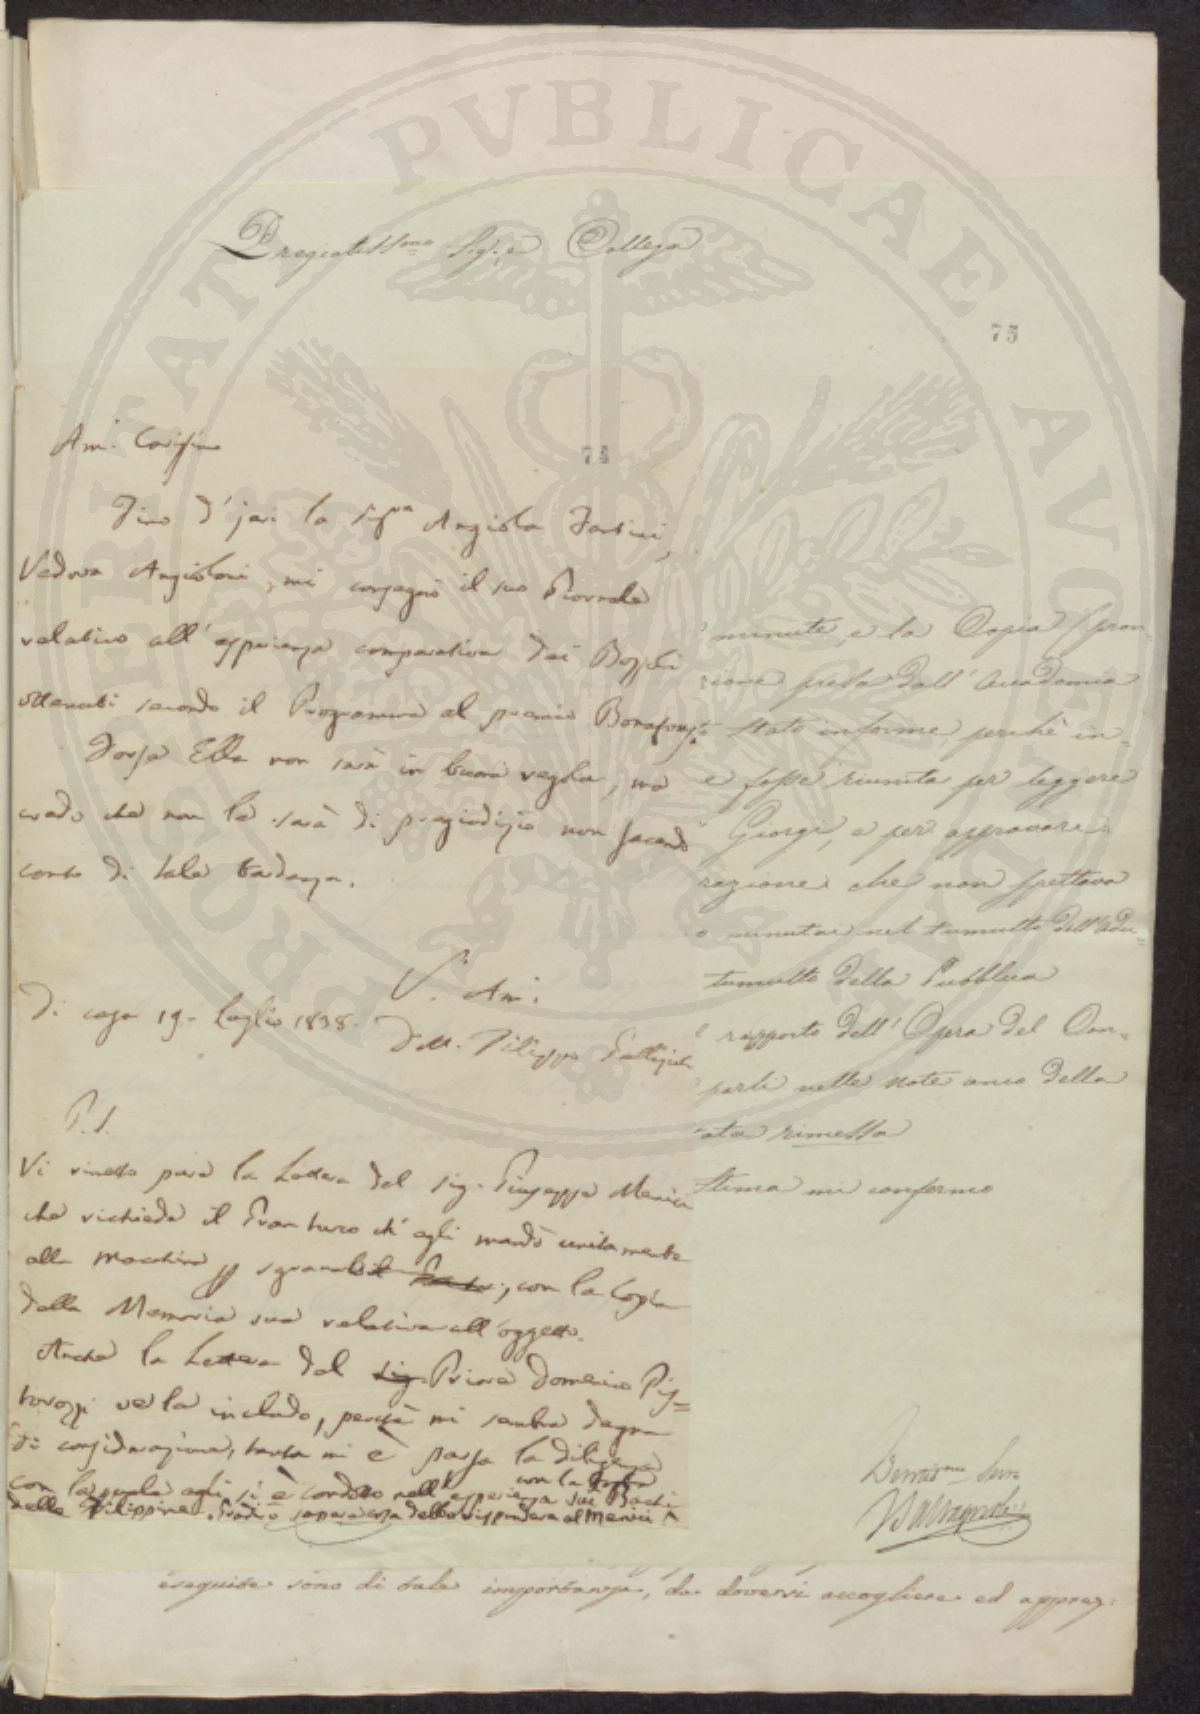 PROSPERITATI PUBLICAE AUGENDAE
Pregiatissmo Sigre Collega
75
74
Am. Carissimo
Fino d'jeri la Sigra Angiola Fantini,
Vedova Angioloni, mi consegnò il suo Giornale
relativo all'esperienza comparativa dei Bozzoli
ottenuti secondo il Programma al premio Bonafous.
Forse Ella non sarà in buona veglia, ma
credo che non le sarà di pregiudizio non facendo
conto di tale tardanza.
Di casa 19. Luglio 1838.
V. Am.
Dott. Filippo Gallizioli
P.S.
Vi rimetto pure la Lettera del Sig. Giuseppe Menici
che richiede il Gran turco ch'egli mandò unitamente
alla Macchina p sgranarlo, con la Copia
della Memoria sua relativa all'oggetto.
Anche la Lettera del Sig. Priore Domenico Pis=
torozzi ve la includo, perchè mi sembra degna
di considerazione, tanta mi è parsa la diligenza
con la quale egli si è condotto nell'esperienza sui Bachi
con la foglia
delle Filippine. Gradirò sapere cosa debbo rispondere al Menici
minute, e la Copia
zione presa dall'Accademia
stato informe, perchè in=
e fosse riunita per leggere
Giorgi, e per approvare
razione che non spettava
o minutai nel tumulto dell'Adu=
tumulto della Pubblica
rapporto dell'Opera del Con=
parli nelle note anco della
ata rimessa
stima mi confermo
eseguite sono di tale importanza, da doversi accogliere ed apprez=